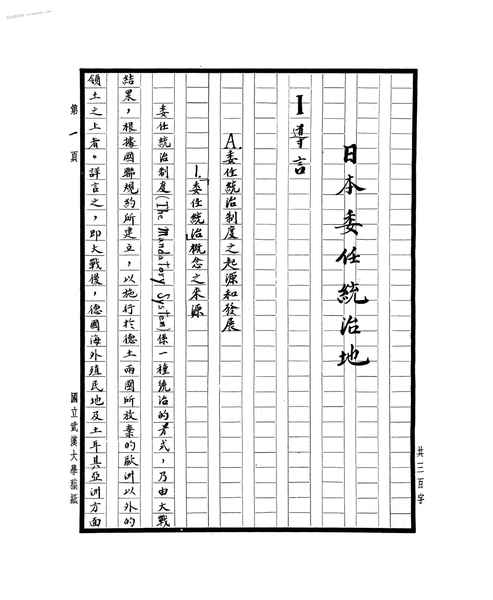 日本委任統治地
I 導言
A.委任統治制度之起源和發展
1.「委任統治」概念之來源
委任統治制度(The Mandatory System)係一種統治的方式，乃由大戰
結果，根據國聯規約所建立，以施行於德土兩國所放棄的歐洲以外的
領土之上者。詳言之，即大戰後，德國海外殖民地及土耳其亞洲方面
共三百字
第 1 頁
國立武漢大學稿紙